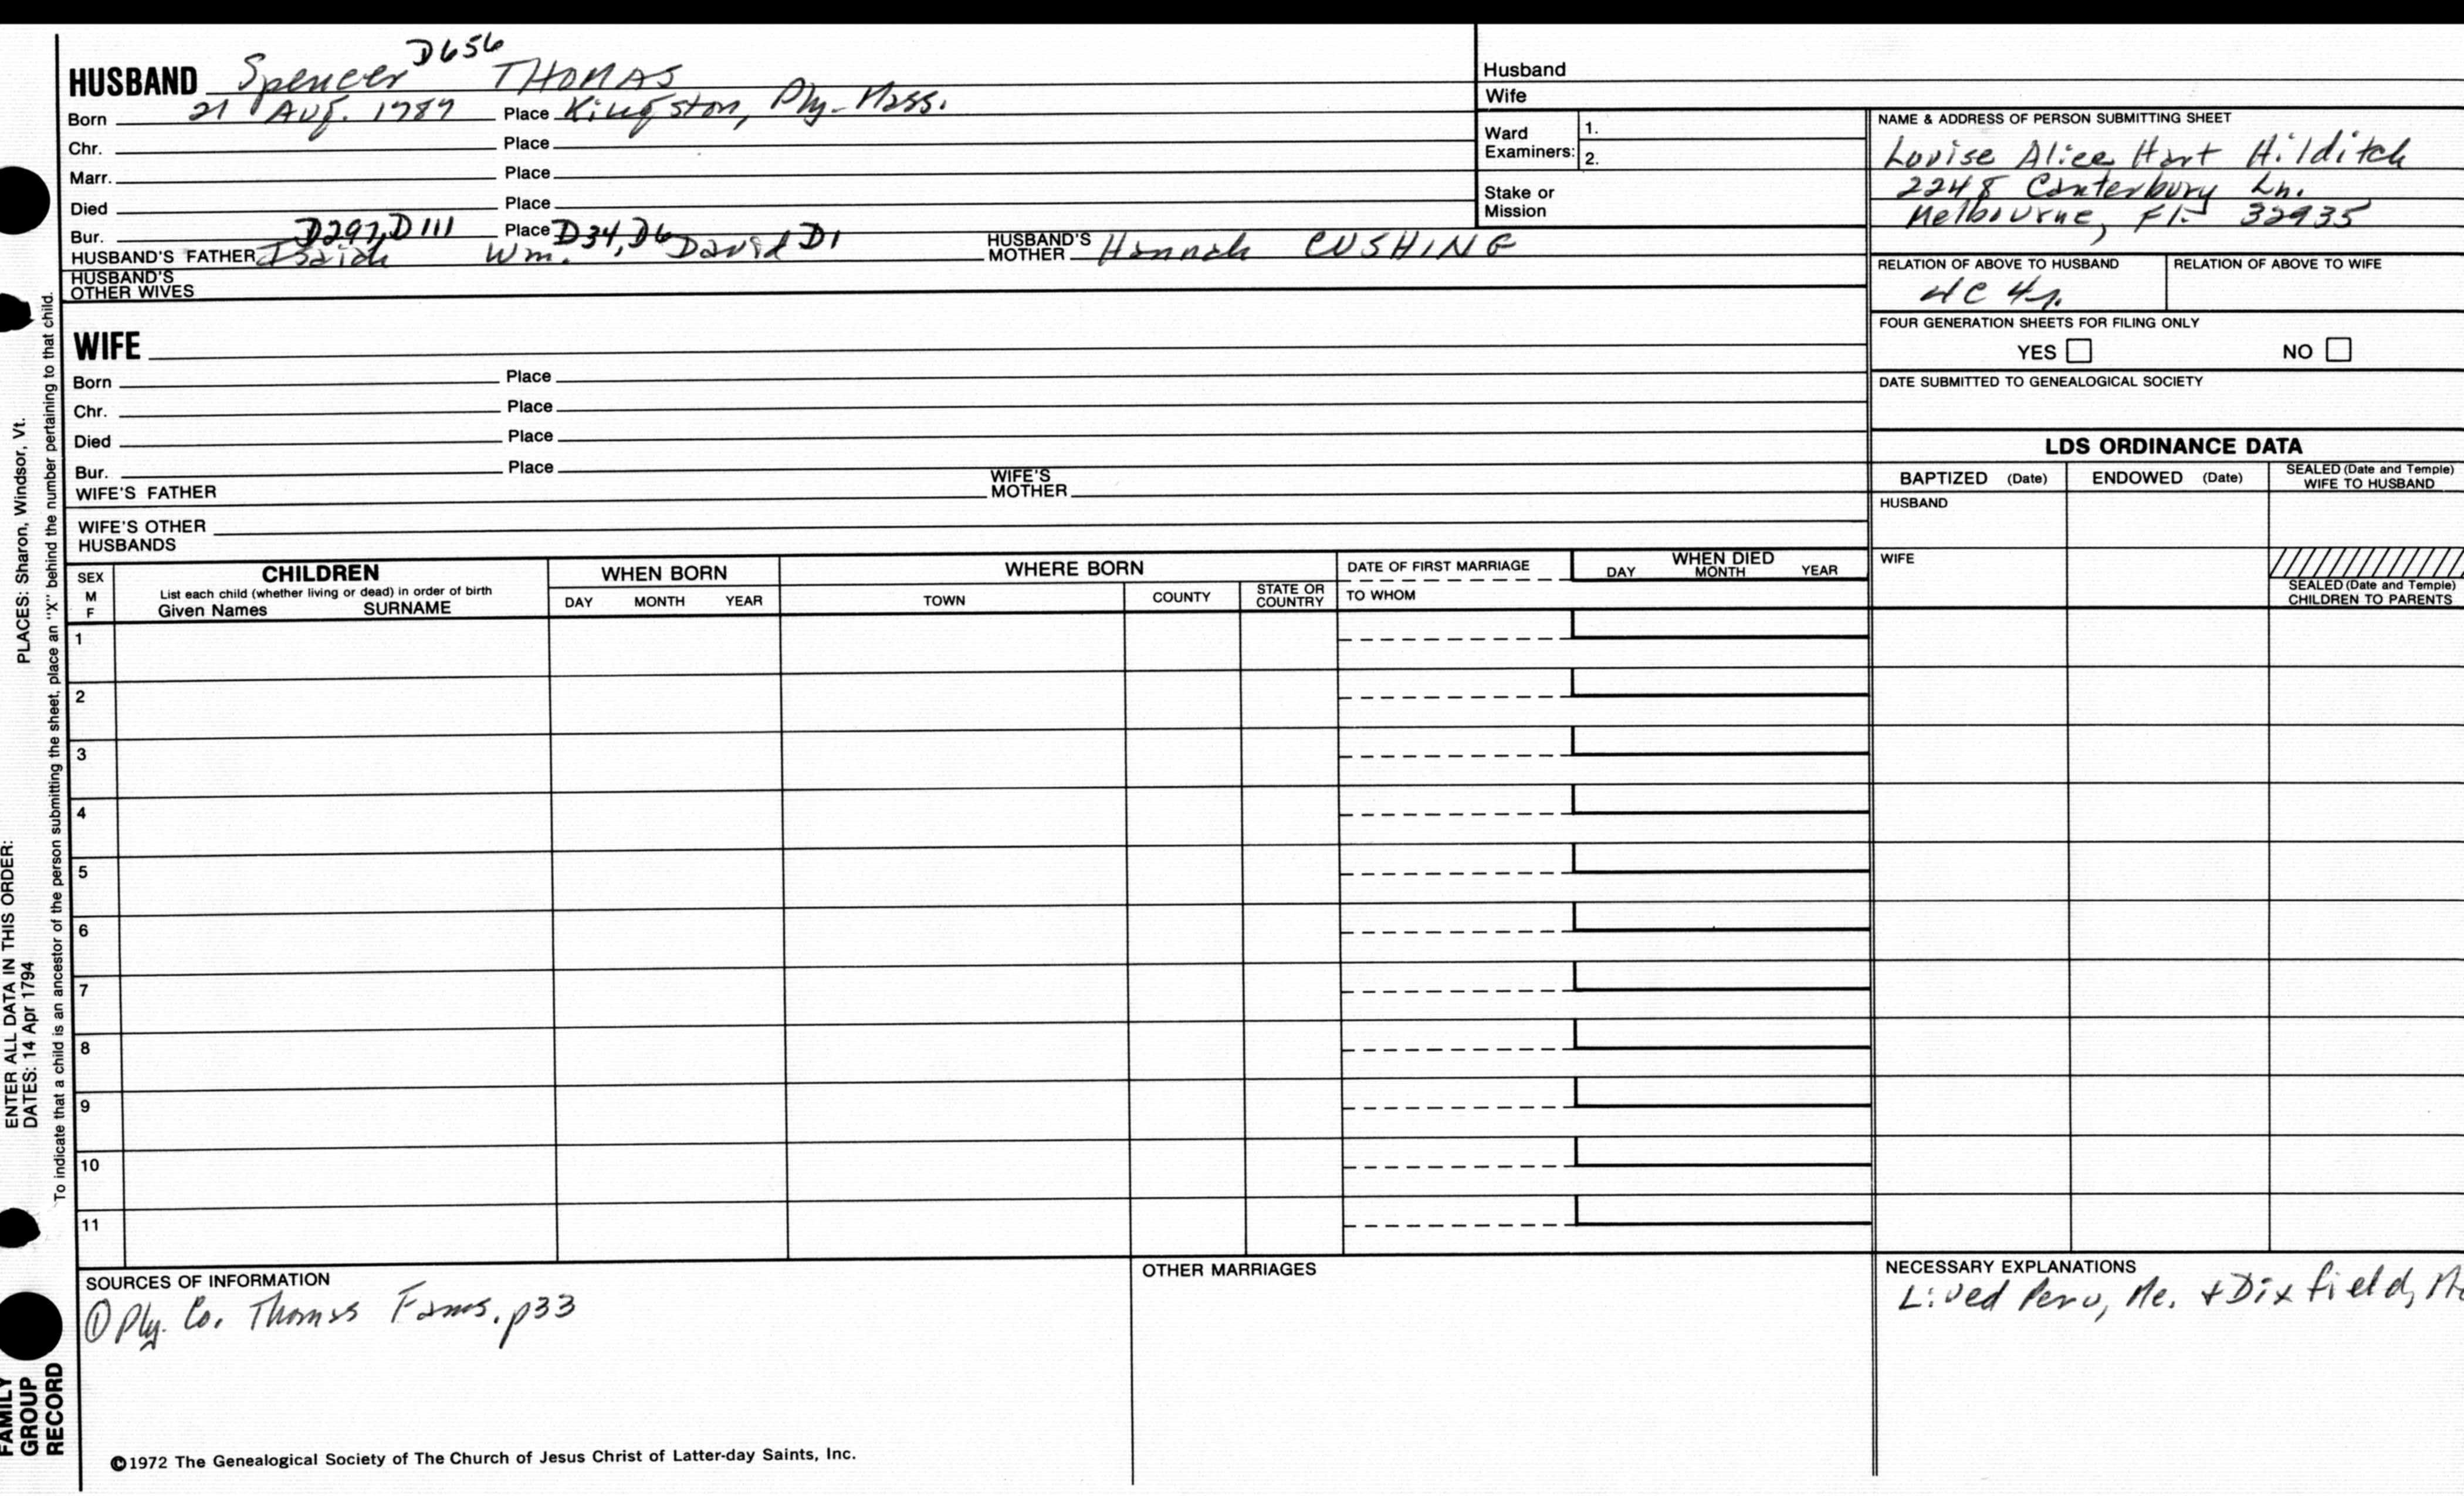 HUSBAND Spencer D656 THOMAS
Born 21 Aug. 1787 Place Kingston, Ply- Mass.
Chr. Place
Marr. Place
Died Place
Bur. Place
D297, D111 D34, D6 D1
HUSBAND'S FATHER Isaich Wm. David HUSBAND'S MOTHER Hannah CUSHING
HUSBAND'S OTHER WIVES
Husband
Wife
Ward Examiners: 1.
2.
Stake or Mission
NAME & ADDRESS OF PERSON SUBMITTING SHEET
Louise Alice Hart Hilditch
2248 Canterbury Ln.
Melbourne, Fl- 32935
RELATION OF ABOVE TO HUSBAND RELATION OF ABOVE TO WIFE
4C 4r.
FOUR GENERATION SHEETS FOR FILING ONLY
YES NO
DATE SUBMITTED TO GENEALOGICAL SOCIETY
WIFE
Born Place
Chr. Place
Died Place
Bur. Place
WIFE'S FATHER WIFE'S MOTHER
WIFE'S OTHER HUSBANDS
LDS ORDINANCE DATA
BAPTIZED (Date) ENDOWED (Date) SEALED (Date and Temple) WIFE TO HUSBAND
HUSBAND
WIFE
SEALED (Date and Temple) CHILDREN TO PARENTS
SEX M F
CHILDREN
List each child (whether living or dead) in order of birth
Given Names SURNAME
WHEN BORN
DAY MONTH YEAR
WHERE BORN
TOWN COUNTY STATE OR COUNTRY
DATE OF FIRST MARRIAGE
TO WHOM
WHEN DIED
DAY MONTH YEAR
1
2
3
4
5
6
7
8
9
10
11
SOURCES OF INFORMATION
① Ply. Co. Thomas Fams. p33
OTHER MARRIAGES
NECESSARY EXPLANATIONS
Lived Peru, Me. + Dixfield, Me
©1972 The Genealogical Society of The Church of Jesus Christ of Latter-day Saints, Inc.
FAMILY
GROUP
RECORD
ENTER ALL DATA IN THIS ORDER:
DATES: 14 Apr 1794 PLACES: Sharon, Windsor, Vt.
To indicate that a child is an ancestor of the person submitting the sheet, place an "X" behind the number pertaining to that child.